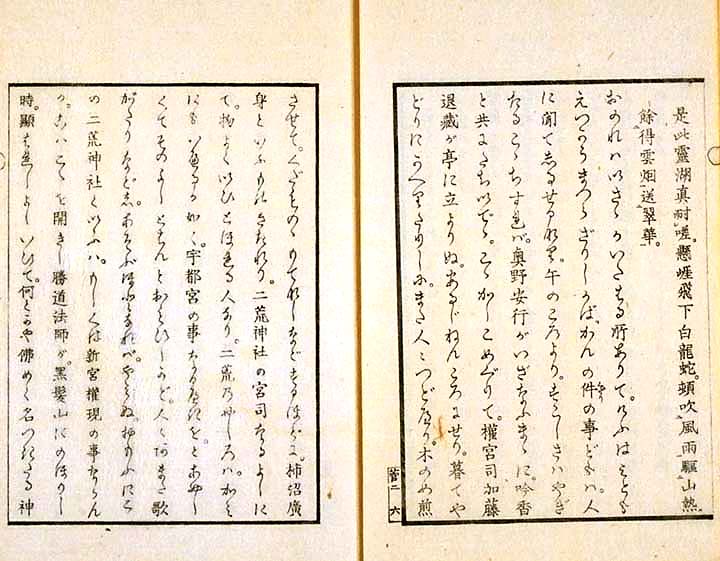 是此靈湖真耐嗟。懸崖飛下白龍蛇。頓吹風雨驅山熱。
餘得雲烟送翠華。
おのれハいさゝかいたはる所ありて。けふは
ざりしかば。かんの件の事どもハ。人
に聞てしるせるなり。午のころより。すこしさハやぎ
たるこゝちすれバ。奥野安行がいざなふまゝに。吟香
と共にたちいでゝ。こゝかしこめぐりて。權宮司加藤
退藏が亭に立よりぬ。あるじねんころにせり。暮てや
どりにかへりたりしに。あまた人々つどひて。木のめ煎
菅二 六
させて。くだものゝ なしなどするほどに。柿沼廣
身といふものきたれり。二荒神社の宮司なるよしに
て。物よくいひとほれる人なり。二荒のやしろハ。かミ
にもいへるか如く。宇都宮の事なるべきを。とあやし
くてそのよしとはんとおもひしかど。人々あまた歌
がたりなどし。あそぶほどなれバ。やミぬ。こ
の二荒神社といふハ。もしくは新宮權現の事ならん
か。こハこゝを開きし勝道法師が。黒髮山にのほりし
時。顯ハれしよしいひて。何とかや佛めく名つきたる神